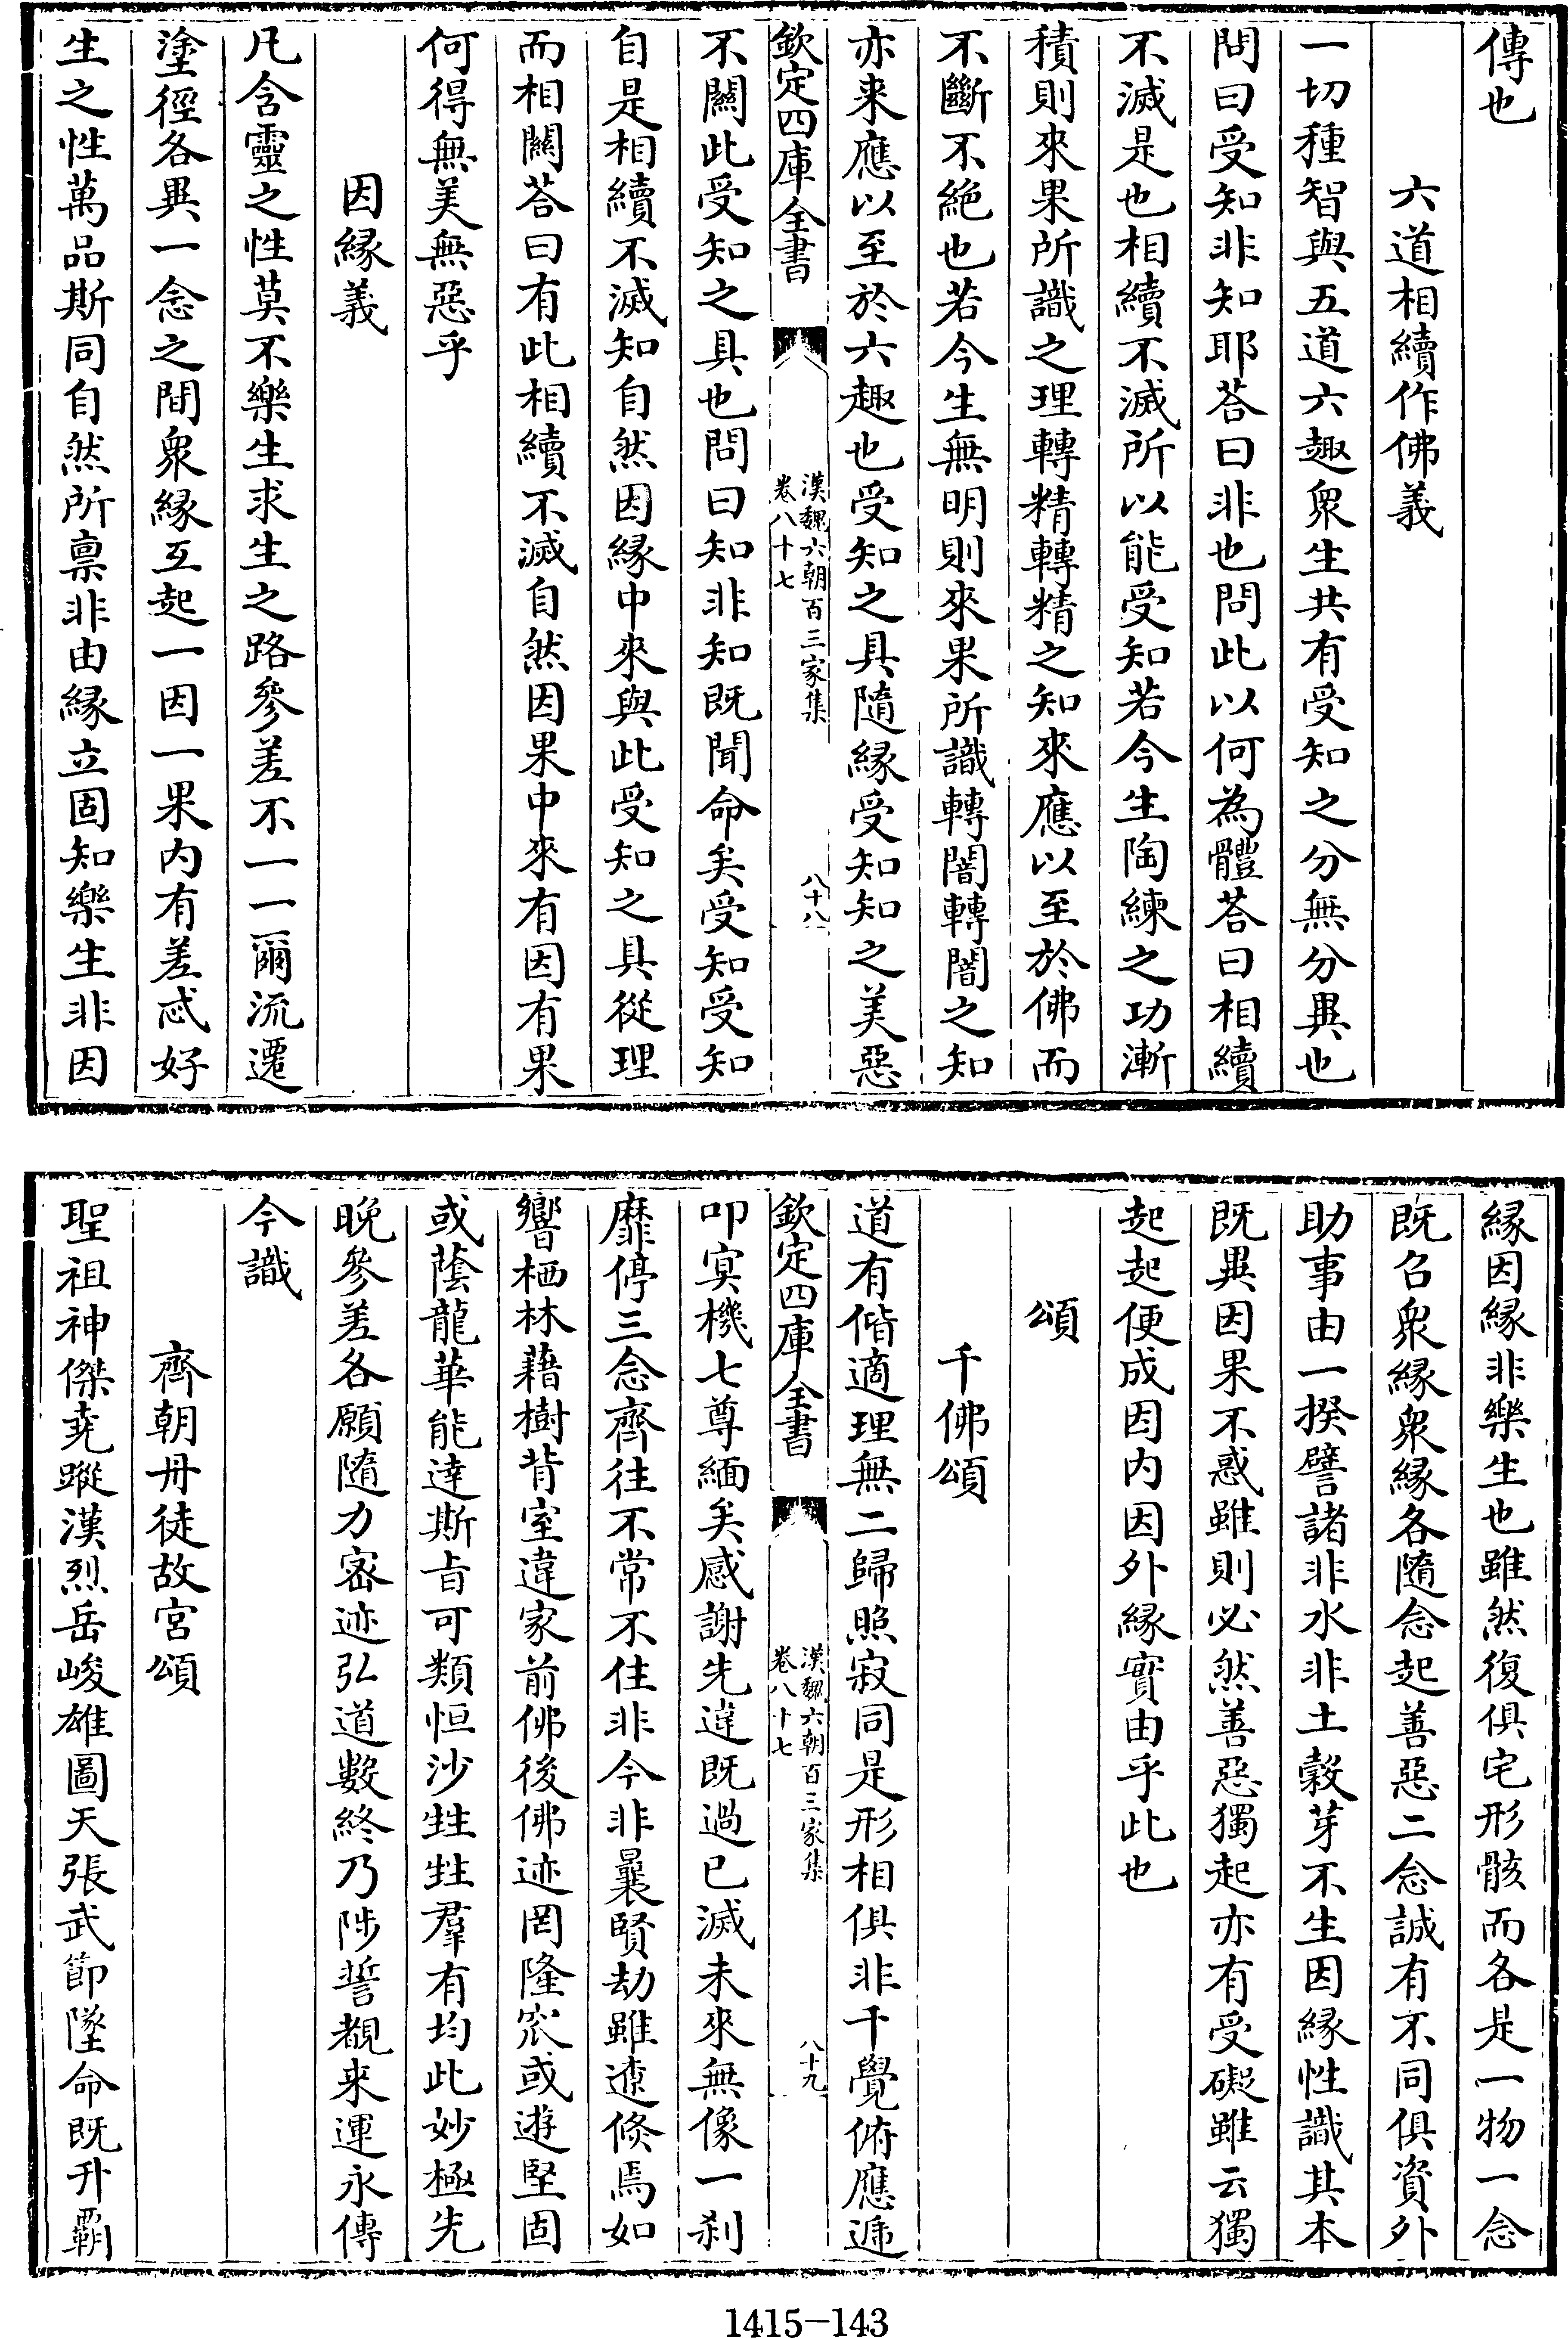 傳也
六道相續作佛義
一切種智與五道六趣衆生共有受知之分無分異也
問曰受知非知耶荅曰非也問此以何為體荅曰相續
不滅是也相續不滅所以能受知若今生陶練之功漸
積則來果所識之理轉精轉精之知來應以至於佛而
不斷不絶也若今生無明則來果所識轉闇轉闇之知
亦来應以至於六趣也受知之具隨緣受知知之美惡
欽定四庫全書
漢魏六朝百三家集
卷八十七
八十八
不關此受知之具也問曰知非知既聞命矣受知受知
自是相續不滅知自然因緣中來與此受知之具從理
而相關荅曰有此相續不滅自然因果中來有因有果
何得無美無惡乎
因緣義
凡含靈之性莫不樂生求生之路參差不一一爾流遷
塗徑各異一念之間衆緣互起一因一果内有差忒好
生之性萬品斯同自然所禀非由緣立固知樂生非因
緣因緣非樂生也雖然復俱宅形骸而各是一物一念
既召衆緣衆緣各隨念起善惡二念誠有不同俱資外
助事由一揆譬諸非水非土榖芽不生因緣性識其本
既異因果不惑雖則必然善惡獨起亦有受礙雖云獨
起起便成因内因外緣實由乎此也
頌
千佛頌
道有偕適理無二歸照寂同是形相俱非千覺俯應遞
欽定四庫全書
漢魏六朝百三家集
卷八十七
八十九
叩寞機七尊緬矣感謝先違既過已滅未來無像一刹
靡停三念齊往不常不住非今非曩賢劫雖遼倐焉如
響栖林藉樹背室違家前佛後佛迹罔隆窊或遊堅固
或蔭龍華能達斯㫖可類恒沙甡甡羣有均此妙極先
晚參差各願隨力宻迹弘道數終乃陟誓覩来運永傳
今識
齊朝丹徒故宮頌
聖祖神傑尭蹤漢烈岳峻雄圖天張武節墜命既升覇
1415-143